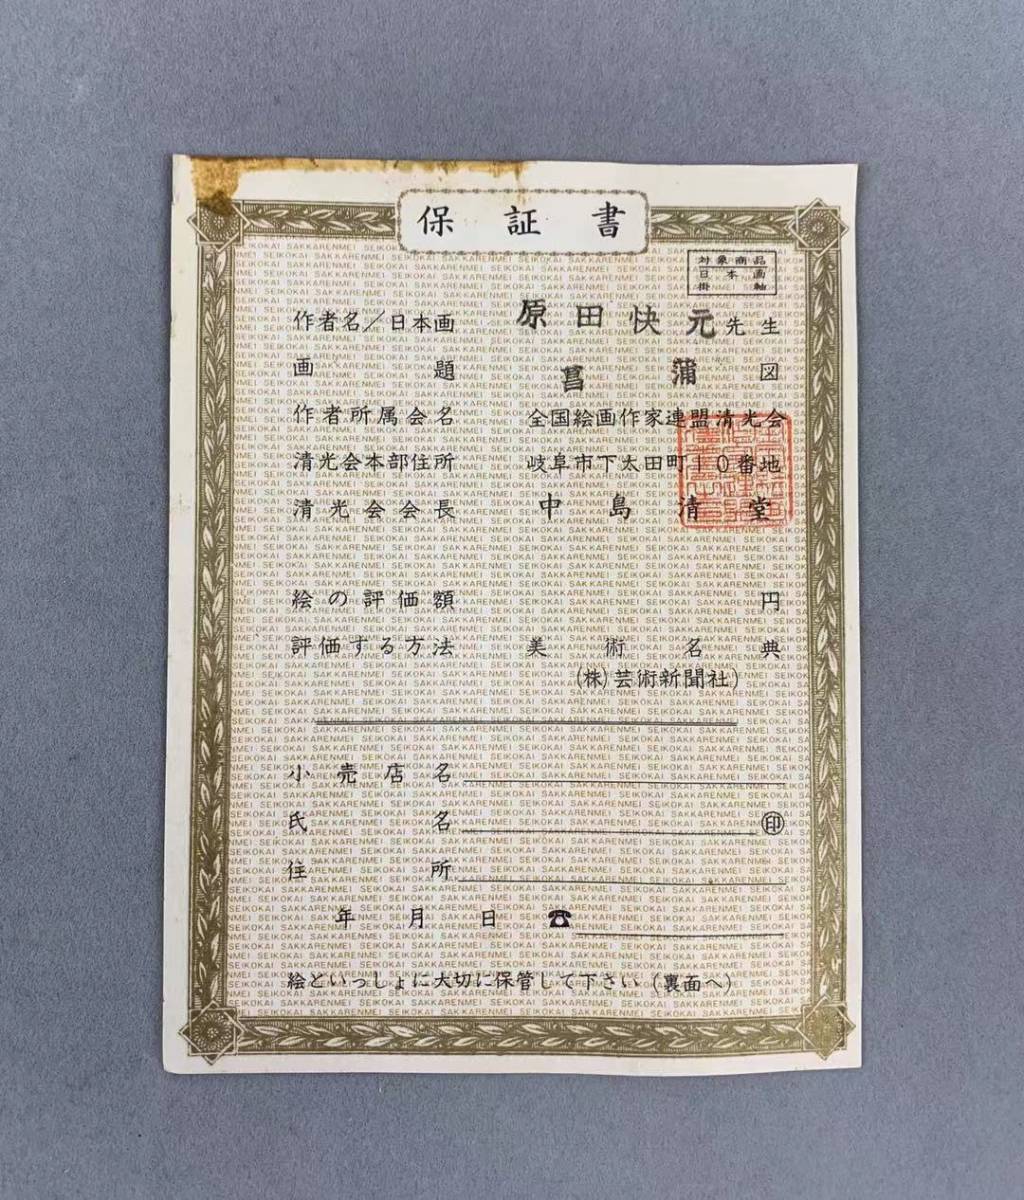 保証書
対象商品
日本画
掛軸
作者名／日本画 原田快元先生
画題 菖蒲図
作者所属会名 全国絵画作家連盟清光会
清光会本部住所 岐阜市下太田町１０番地
清光会会長 中島清堂
絵の評価額 円
評価する方法 美術名典
(株)芸術新聞社)
小売店名
氏名 ㊞
住所
年月日 ☎
絵といっしょに大切に保管して下さい（裏面へ）